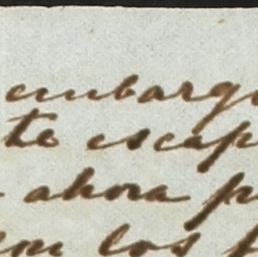 embarg
te escap
ahora p
los